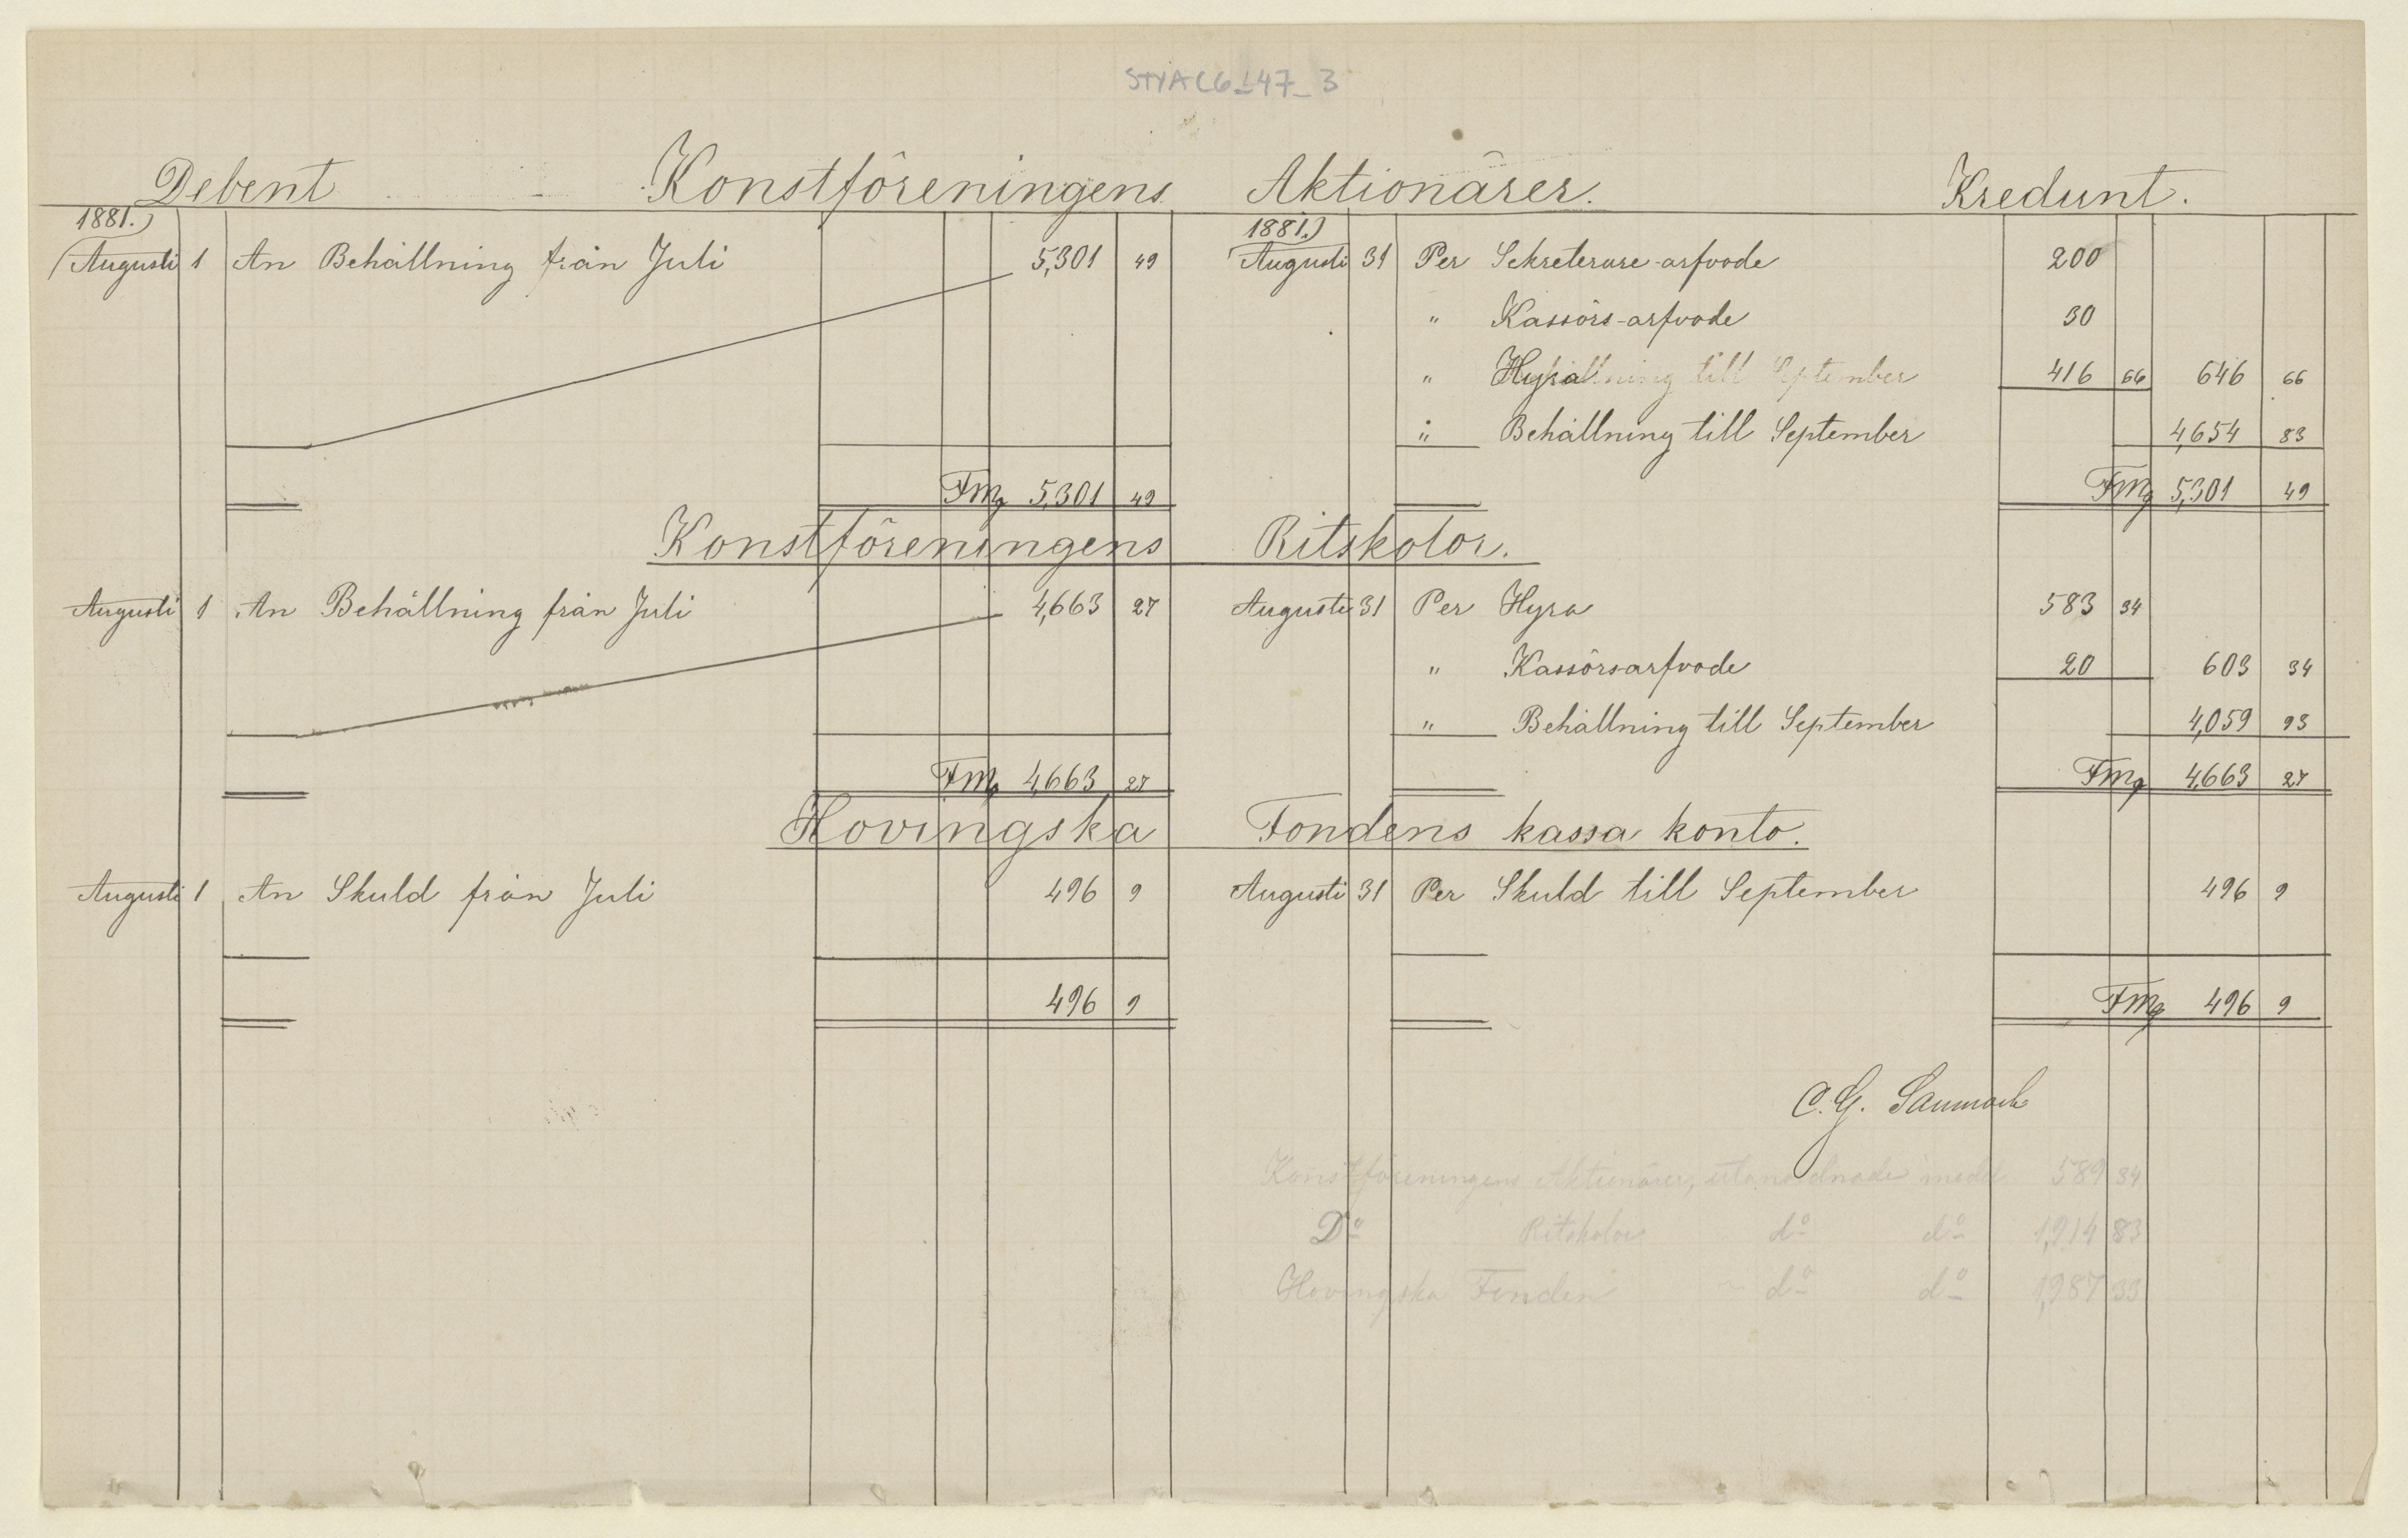 STYAC6_147_3
Debent Konstföreningens Aktionärer. Kredunt.
1881.) 1881.)
Augusti 1 An Behållning från Juli 5,301 49 Augusti 31 Per Sekreterare-arfvode 200
" Kassörs-arfvode 30
" Hyra 416 66 646 66
" Behållning till September 4,654 83
Fmg 5,301 49 Fmg 5,301 49
Konstföreningens Ritskolor.
Augusti 1 An Behållning från Juli 4,663 27 Augusti 31 Per Hyra 583 34
" Kassörsarfvode 20 603 34
" Behållning till September 4,059 93
Fmg 4,663 27 Fmg 4,663 27
Hovingska Fondens kassa konto.
Augusti 1 An Skuld från Juli 496 9 Augusti 31 Per Skuld till September 496 9
496 9 Fmg 496 9
C. G.
Konstföreningens Aktionärer, utanordnade medel 589 34
Do Ritskolor do do 1,214 83
Hovingska Fonden do do 1,987 33